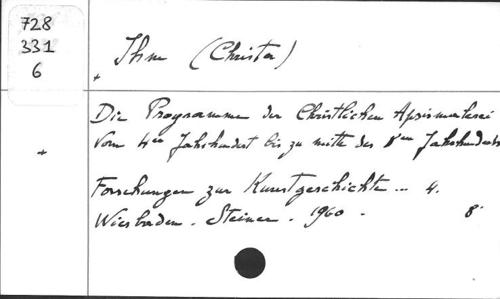 728
331
6
Ihm (Christa)
+
Die Programme der Christlichen Apsismalerei
Vom 4en Jahrhundert bis zu mitte des 8en Jahrhunderts
+
Forschungen zur Kunstgeschichte ... 4.
Wiesbaden. Steiner. 1960.
8°